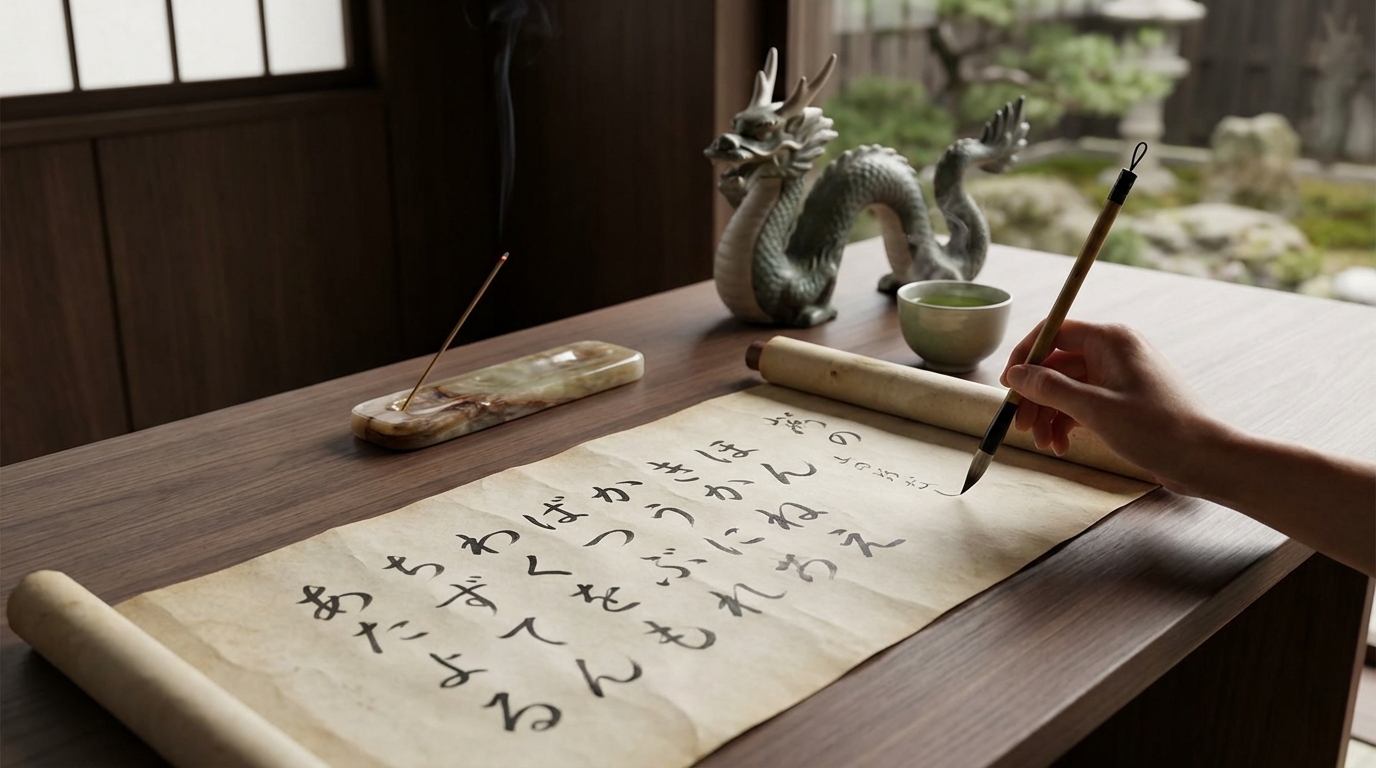 の
ほん
きかねえ
かうにお
ばつぶれ
わくをも
ちずてん
あたよる